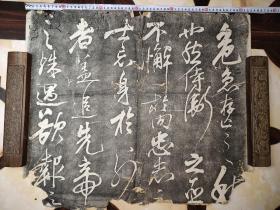 危急存亡之秋
也然侍衛之臣
不懈於内忠志
士忘身於外
者蓋追先帝
之殊遇欲報